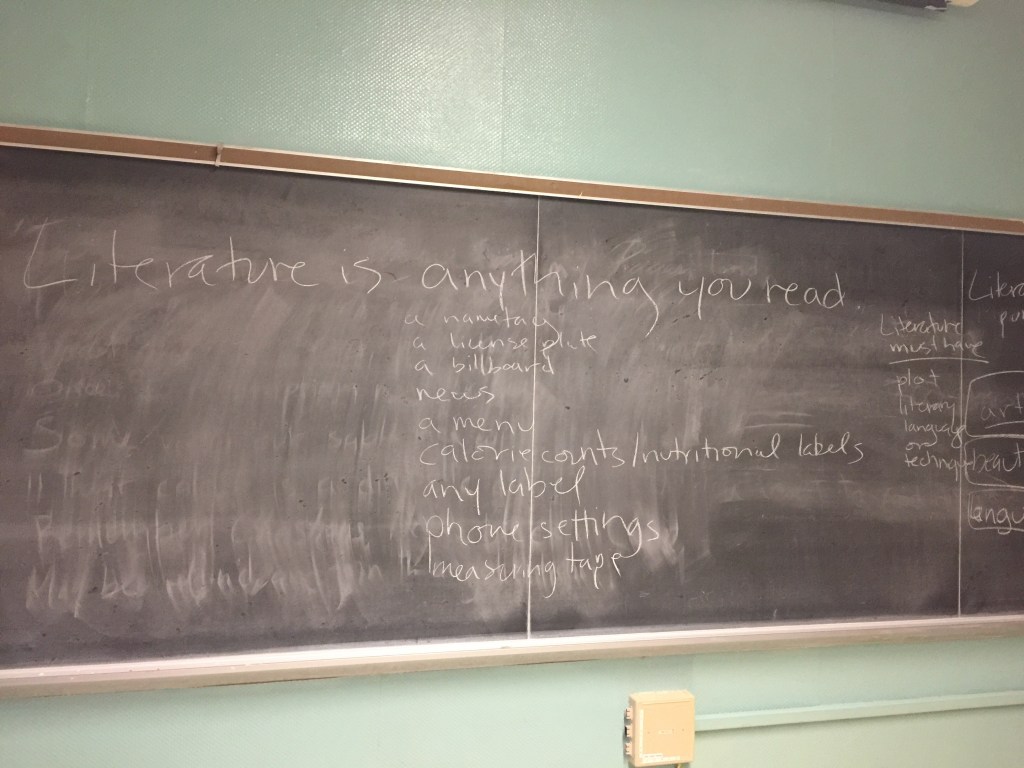 Literature is anything you read.
a nametag
a license plate
a billboard
news
a menu
calorie counts/nutritional labels
any label
phone settings
measuring tape
Literature
must have
plot
literary
language
and
Litera
pu
art
beaut
langu